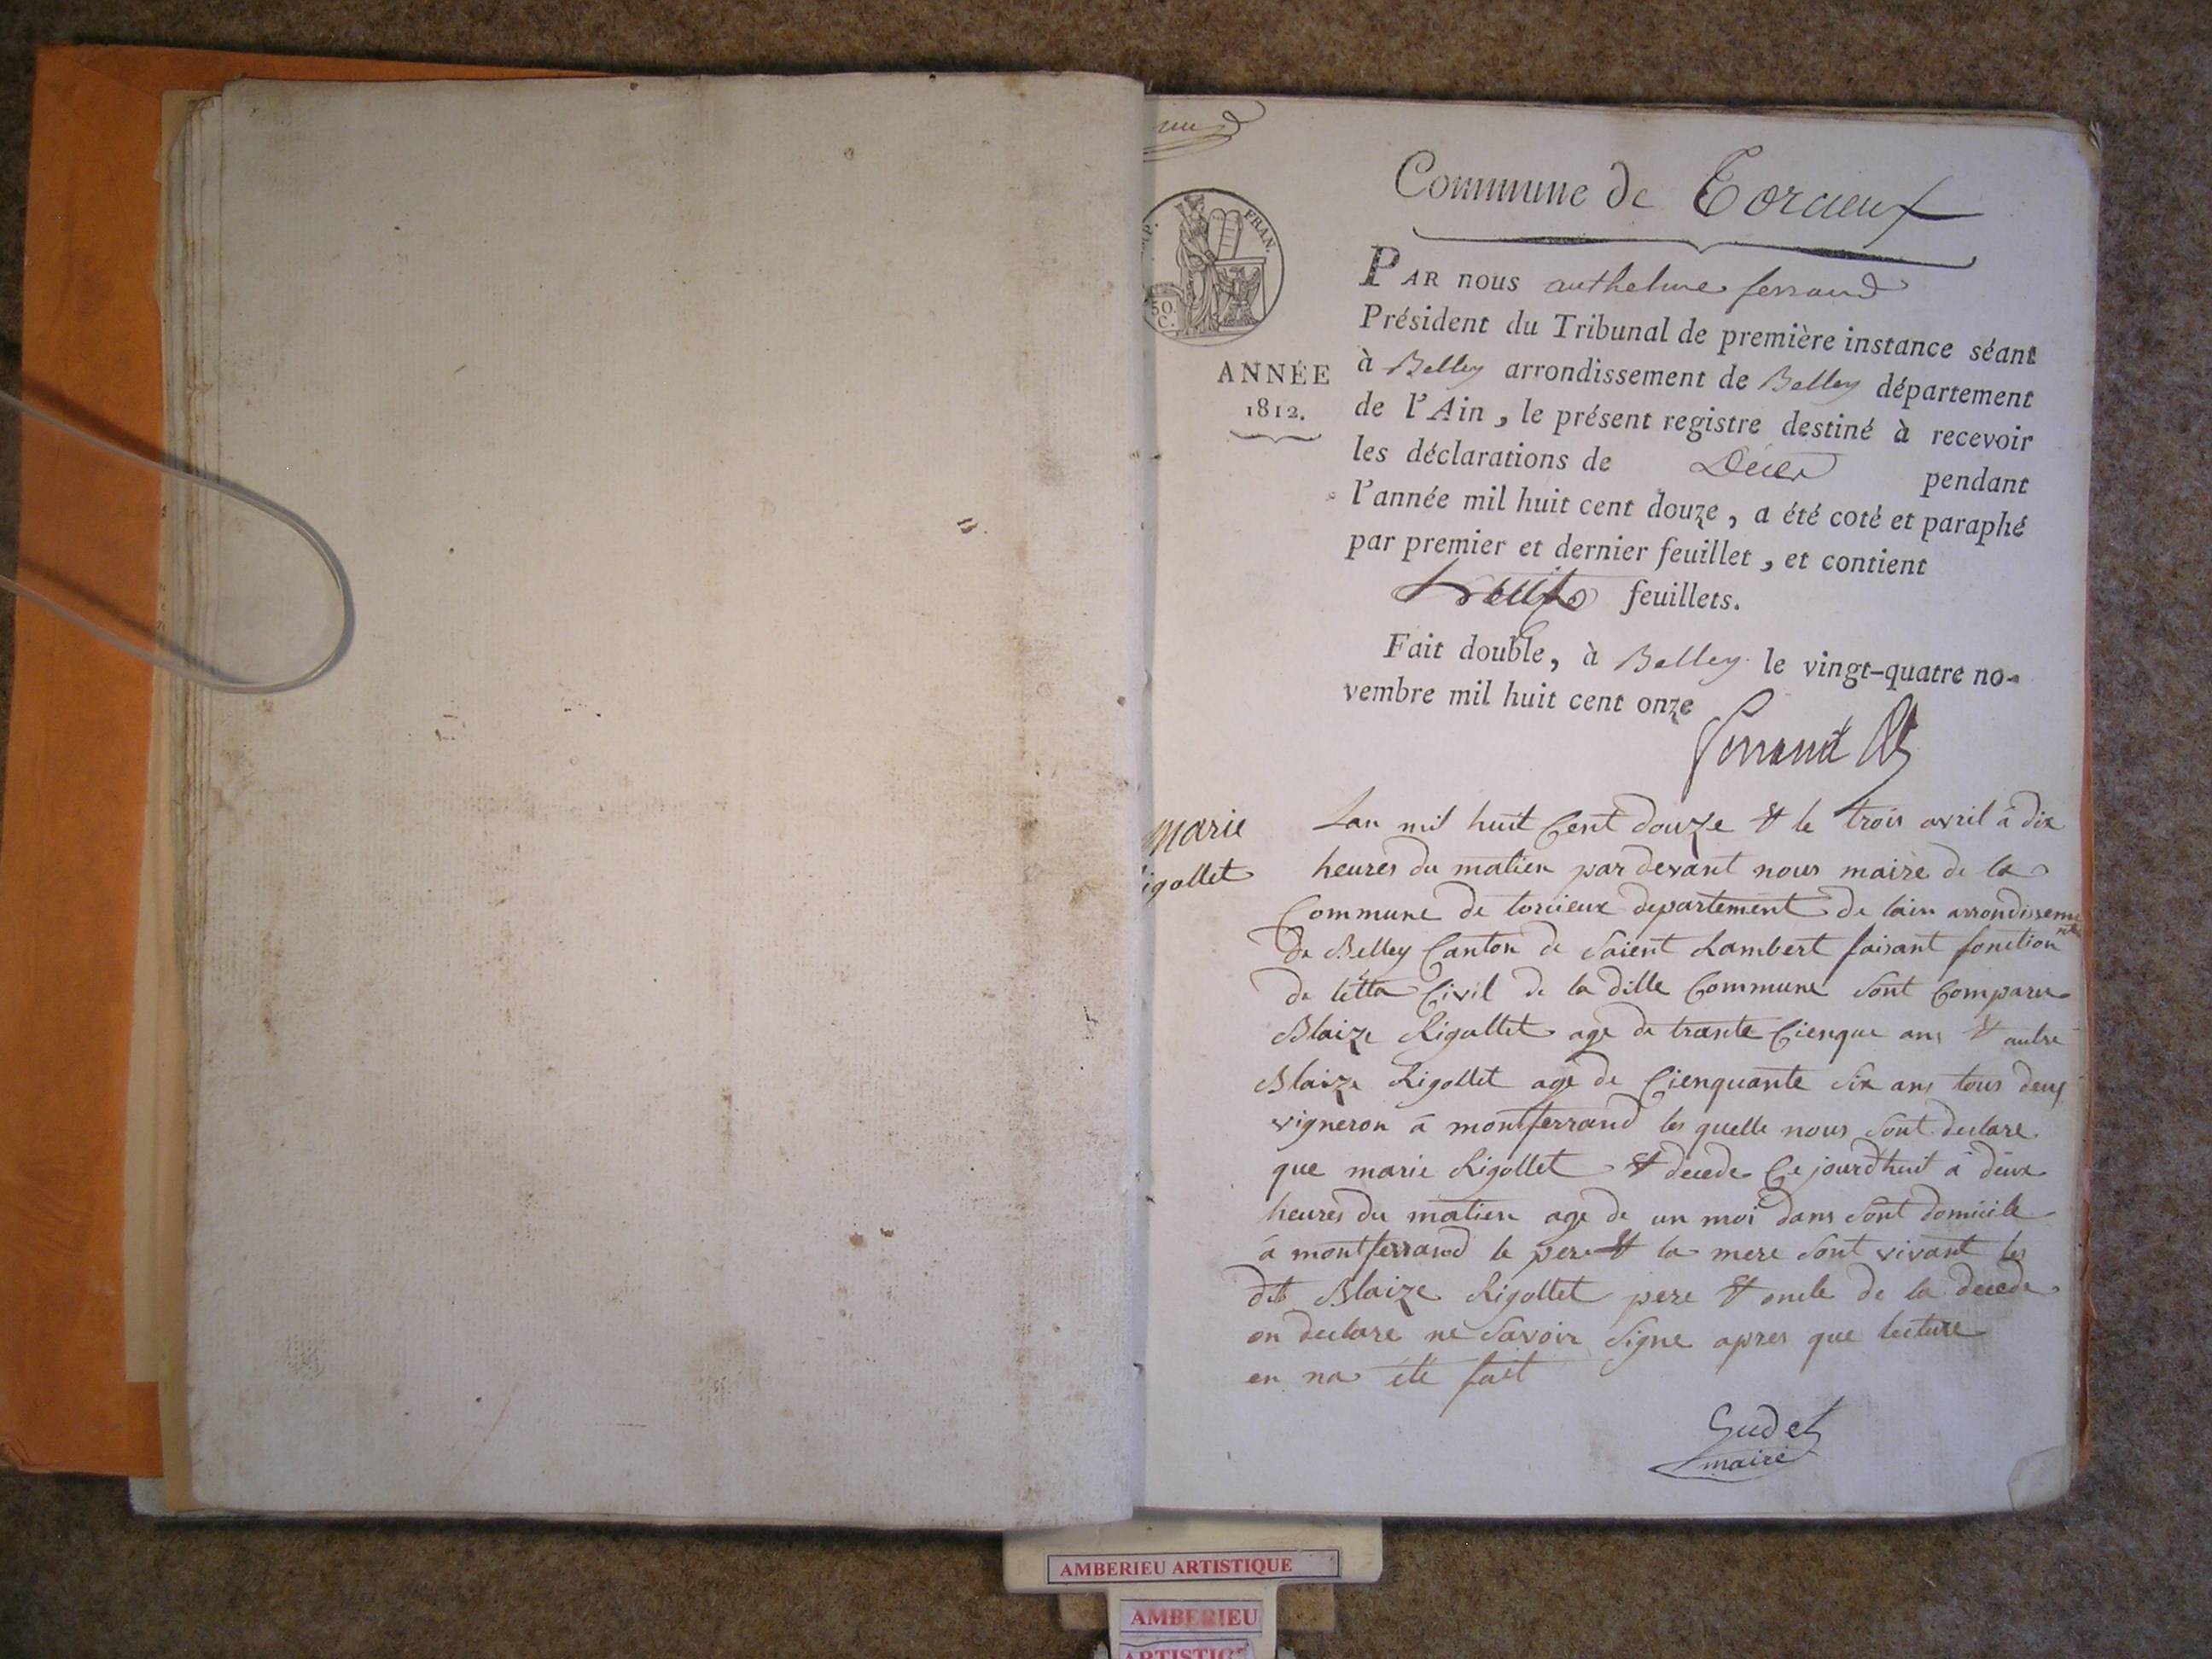 Commune de Torcieux
FRAN.
50.
C.
ANNÉE
1812.
PAR nous anthelme ferrand
Président du Tribunal de première instance séant
à Belley arrondissement de Belley département
de l'Ain, le présent registre destiné à recevoir
les déclarations de Décès pendant
l'année mil huit cent douze, a été coté et paraphé
par premier et dernier feuillet, et contient
feuillets.
Fait double, à Belley le vingt-quatre no-
vembre mil huit cent onze
Ferrand
Marie
igollet
Lan mil huit Cent douze & le trois avril à dix
heures du matien par devant nous maire de la
Commune de torcieux departement de lain arrondisseme
nt
de Belley Canton de Saient Lambert faisant fonction
de létta Civil de la ditte Commune sont Comparu
Blaize Rigollet age de trante Cienque ans & autre
Blaize Rigollet age de Cienquante six ans tous deux
vigneron à montferrand les quelle nous sont declare
que marie Rigollet & decede Ce jourdhuit à deux
heures du matien age de un moi dans sont domicile
à montferrand le pere & la mere sont vivant les
dit Blaize Rigollet pere & oncle de la decede
on declare ne Savoir Signe apres que lecture
en na été fait
Gudet
maire
AMBERIEU ARTISTIQUE
AMBERIEU
ARTISTIQUE